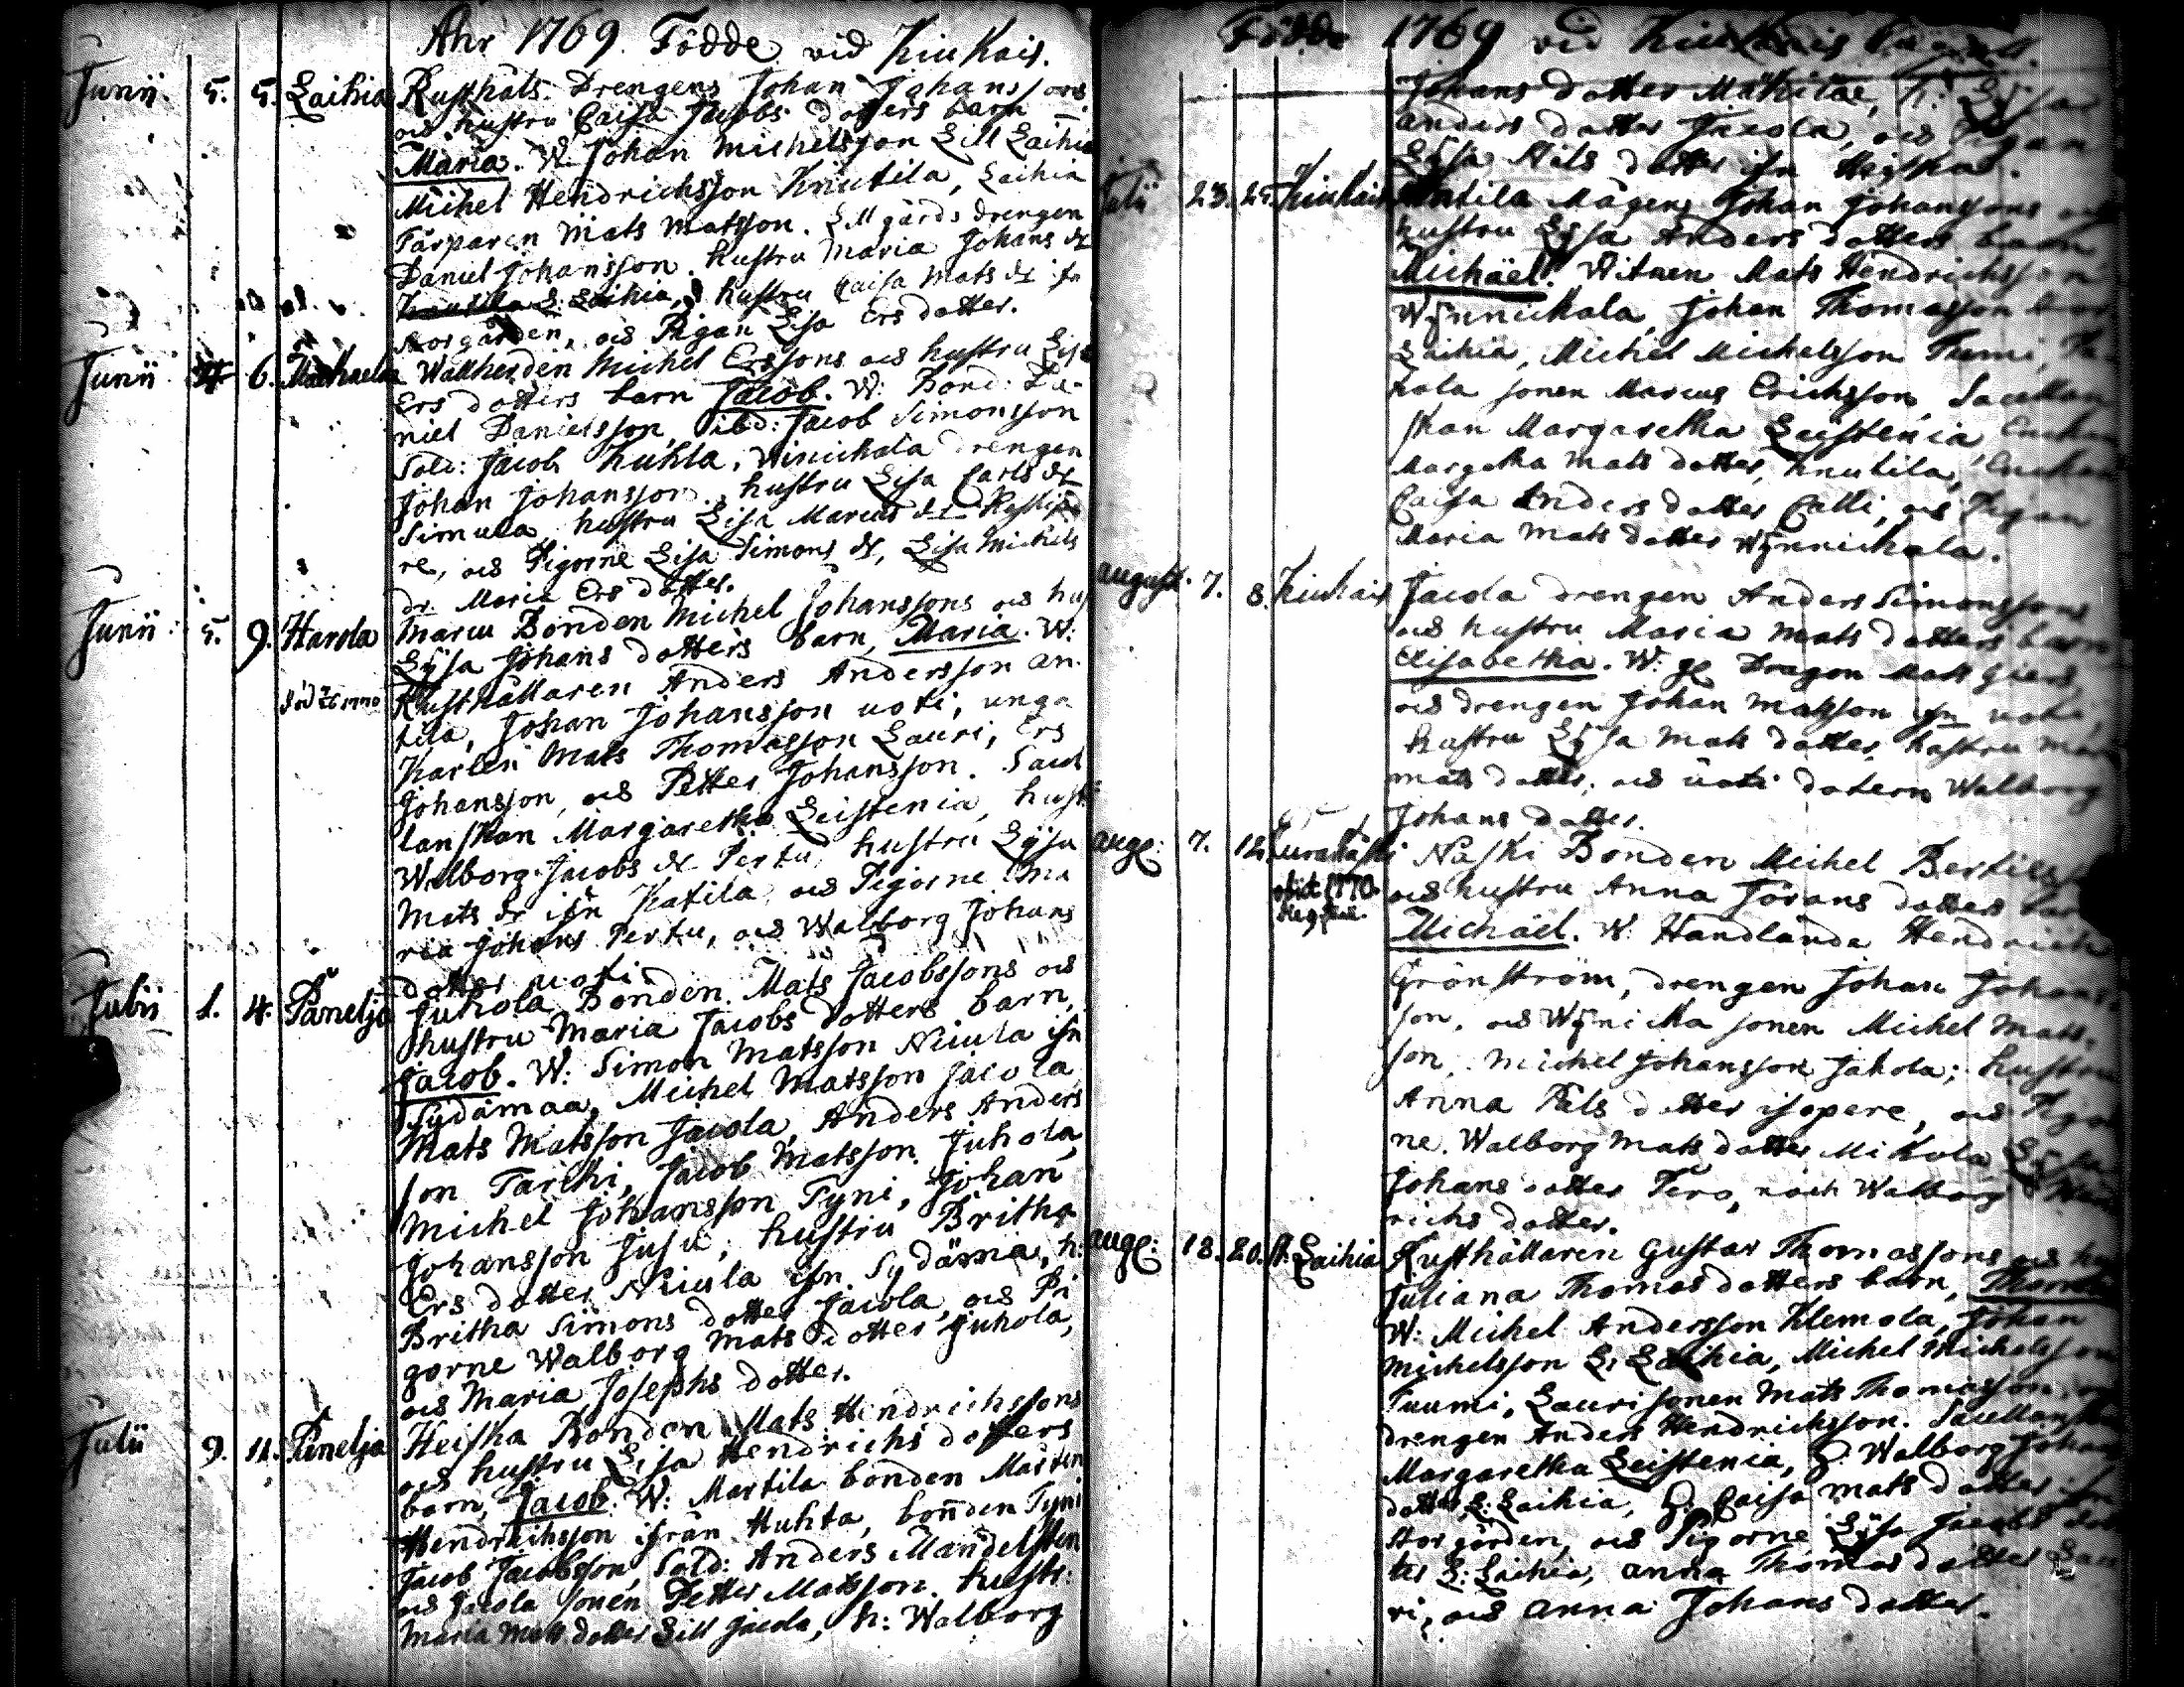 Åhr 1769. Födde vid Kiukais.
Junii 5. 5. Laihia Rusthåls Drengens Johan Johanssons
och hustru Caisa Jacobs dotters barn
Maria. W. Johan Michelsson Lill Laihia
Michel Hendrichsson Knutila, Laihia
Torparen Mats Matsson. Lillgårds drengen
Daniel Johansson. hustru Maria Johans dr
L: Laihia, hustru Caisa Mats dr ifr
storgården, och Pigan Lisa Ers dotter.
Junii 6. Wallherden Michel Erssons och hustru Lisa
Ers dotters barn Jacob. W: Bond: Da-
niel Danielsson, ibd: Jacob Simonsson
Sold: Jacob Kuhla, Winickala drengen
Johan Johansson. hustru Lisa Carls dr
Simula, hustru Lisa Marcus dr
re, och Pigorne Lisa Simons dr, Lisa Michels
dr Maria Ers dotter.
Junii 5. 9. Harola Marcu Bonden Michel Johanssons och hu
Lÿsa Johans dotters barn, Maria. W:
Rusthållaren Anders Andersson An-
tila, Johan Johansson uoti, unga
Karlen Mats Thomasson Lauri, Ers
Johansson, och Petter Johansson. Sacel
lanskan Margaretha Leistenia, hustr
Walborg Jacobs dr Pertu, hustru Lÿsa
Mats dr ifrn Katila, och Pigorne Ma
ria Johans Pertu, och Walborg Johans
dotter uoti
Julii 1. 4. Panelja Juhola Bonden Mats Jacobssons och
hustru Maria Jacobs dotters barn,
Jacob. W: Simon Matsson Niuula ifn
Sydämaa, Michel Matsson Jacola
Mats Matsson Jacola, Anders Anders
son Tarcki, Jacob Matsson Juhola,
Michel Johansson Tyni, Johan
Johansson Jusu, hustru Britha
Ers dotter Niuula ifn Sydäma, h:
Britha Simons dotter Jacola, och Pi
gorne Walborg Mats dotter Juhola,
och Maria Josephs dotter.
Julii 9. 11. Panelja Heiska Bonden Mats Hendrichssons
och hustru Lisa Hendrichs dotters
barn, Jacob. W: Martila bonden Mårten
Hendrichsson ifrån Huhta, bonden Tyni
Jacob Jacobsson, Sold: Anders Mandelsten
och Jacola sonen Petter Matsson. hustr:
Maria Mats dotter Lill Jacola, h: Walborg
Födde 1769 vid Kiukais
Johans dotter Mäkilae, h: Lÿsa
Anders dotter Jacola, och Pigan
Lÿsa Nils dotter ifn Heiska.
Julii 23. 25. Kiukais Mågens Johan Johanssons och
hustru Lÿsa Anders dotters barn
Michäel. Witnen Mats Hendrichsson
Wÿnnickala, Johan Thomasson
Laihia, Michel Michelsson Tumi,
kola sonen Marcus Erichsson, Sacellan
skan Margaretha Leistenia, Enckan
Margetha Mats dotter, Knutila, Enckan
Caisa Anders dotter Calli, och Pigan
Maria Mats dotter Wÿnnickala.
august. 7. 8. Kiukais Jacola drengen Anders Simonssons
och hustru Maria Mats dotters barn
Elisabetha. W: Dragon Mats Giers,
och drengen Johan Matsson ifn uoti,
hustru Lÿsa Mats dotter, hustru
Mats dotter, och uoti dotern Walborg
Johans dotter.
aug: 7. 12. Naski Bonden Michel Bertils
och hustru Anna Jörans dotters barn
obiit 1770
Michäel. W: Handlande Hendrich
Grönström, drengen Johan Johans-
son, och Wÿnicka sonen Michel Mats-
son, Michel Johansson Jakola; hustru
Anna Påls dotter isopere, och Pigor
ne Walborg Mats dotter Mikola, Lÿsa
Johans dotter Tero, och Walborg Hend
richs dotter.
aug: 18. 20. Laihia Rusthållaren Gustav Thomassons och hu
Juliana Thomas dotters barn, Thomas
W: Michel Andersson Klemola, Johan
Michelsson L: Laihia, Michel Michelsson
Tuumi, Laurisonen Mats Thomasson, och
drengen Anders Hendrichsson. Sacellanskan
Margaretha Leistenia, H. Walborg Johans
dotter L: Laihia, H. Caisa Mats dotter ifn
storgården, och Pigorne Lÿsa Jacobs dot
ter L: Laihia, Anna Thomas dotter Lau
ri, och Anna Johans dotter.